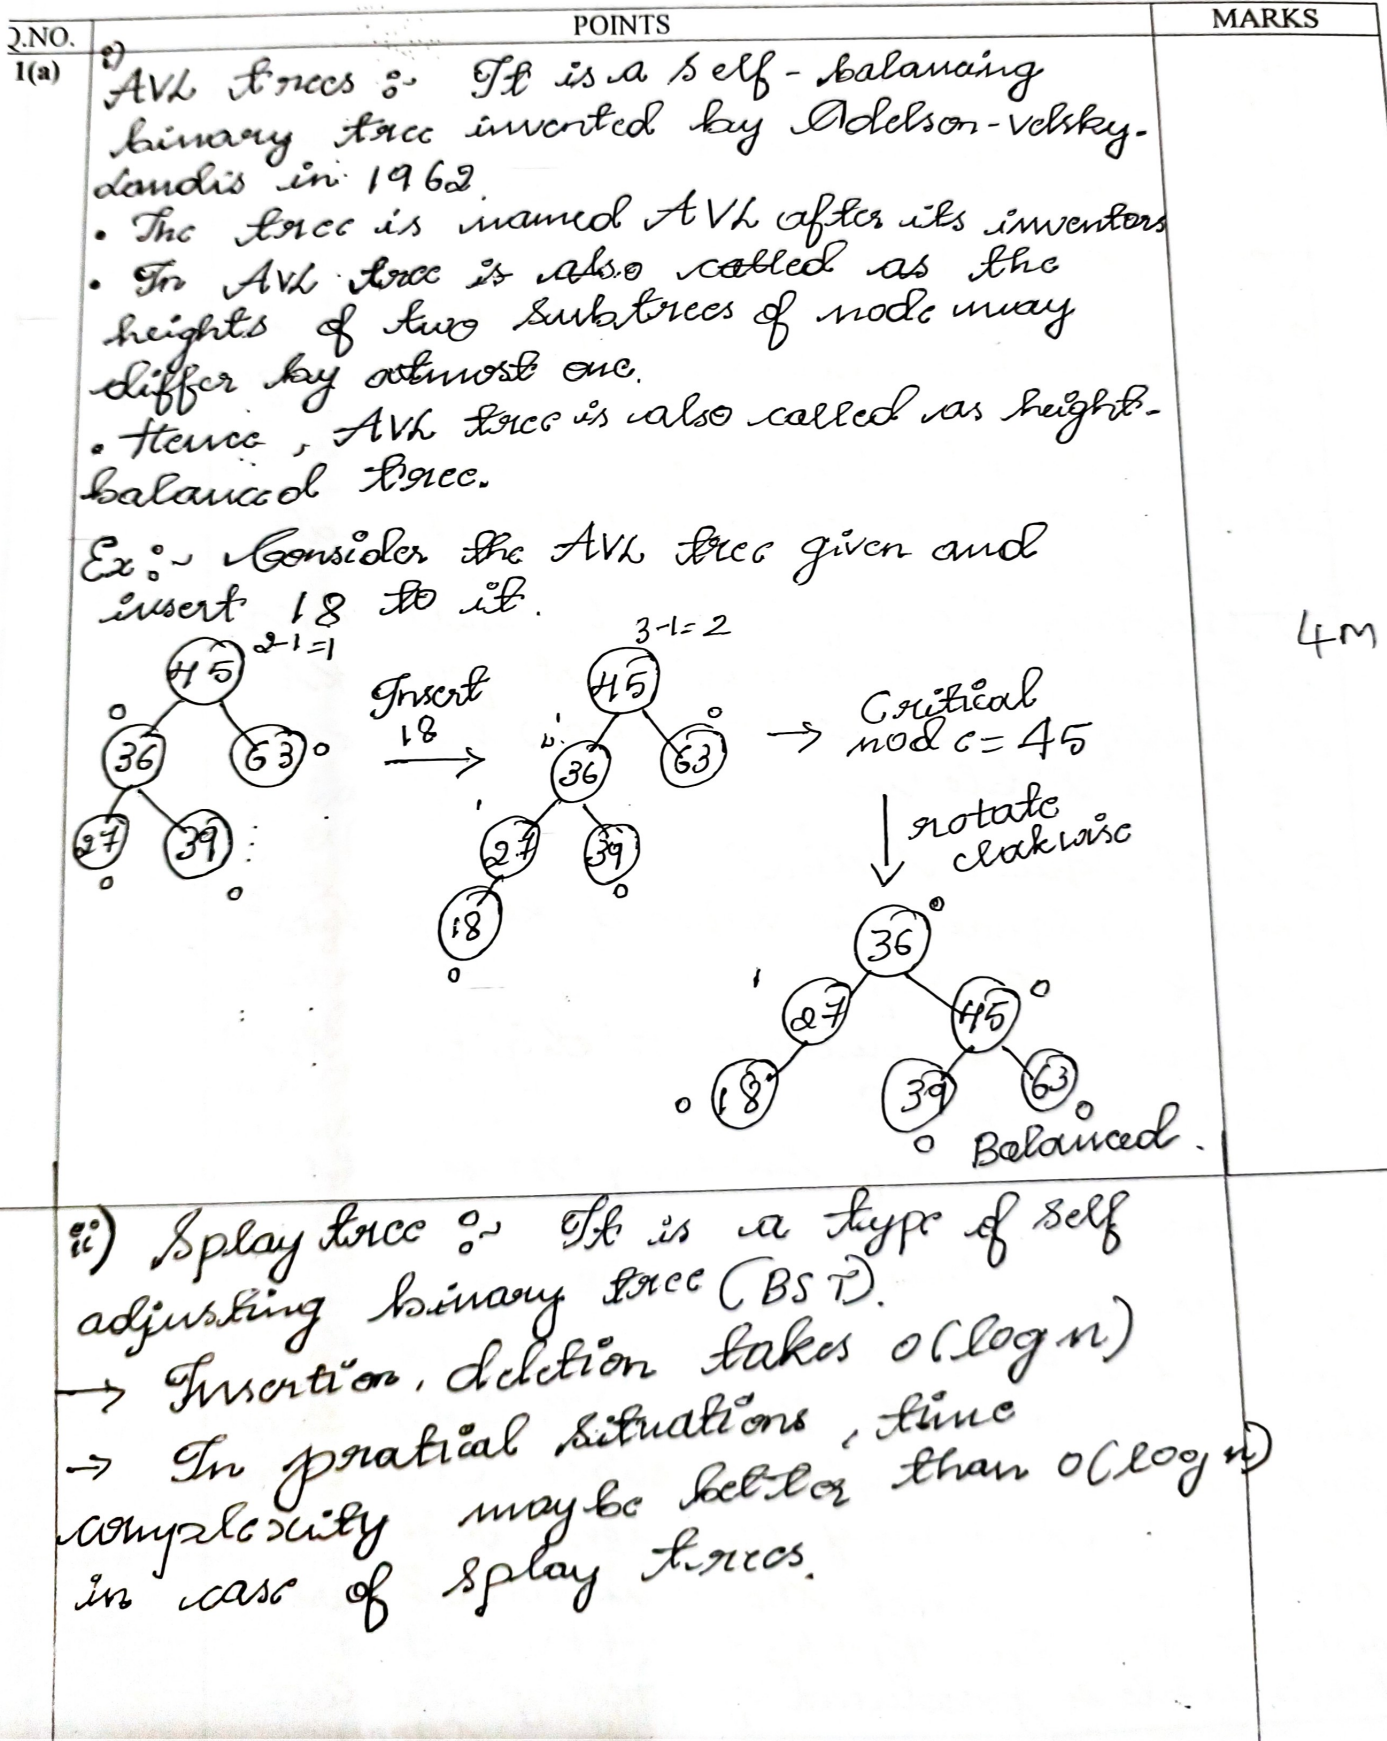 Q.NO. POINTS MARKS
1(a) i)
AVL trees :- It is a self-balancing
binary tree invented by Adelson-velsky-
Landis in 1962.
• The tree is named AVL after its inventors
• In AVL tree is also called as the
heights of two subtrees of node may
differ by atmost one.
• Hence, AVL tree is also called as height-
balanced tree.
Ex:- Consider the AVL tree given and
insert 18 to it.
45 2-1=1
0
36 63 0
27 39
0 0
Insert
18
3-1=2
45
0
36 63
1
27 39
0
18
0
Critical
node = 45
4M
rotate
clokwise
36 0
1
27 45 0
0 18 39 63
0 0
Balanced.
ii) Splay tree :- It is a type of self
adjusting binary tree (BST).
→ Insertion, deletion takes o(log n)
→ In pratical situations, time
complexity maybe better than o(log n)
in case of splay trees.